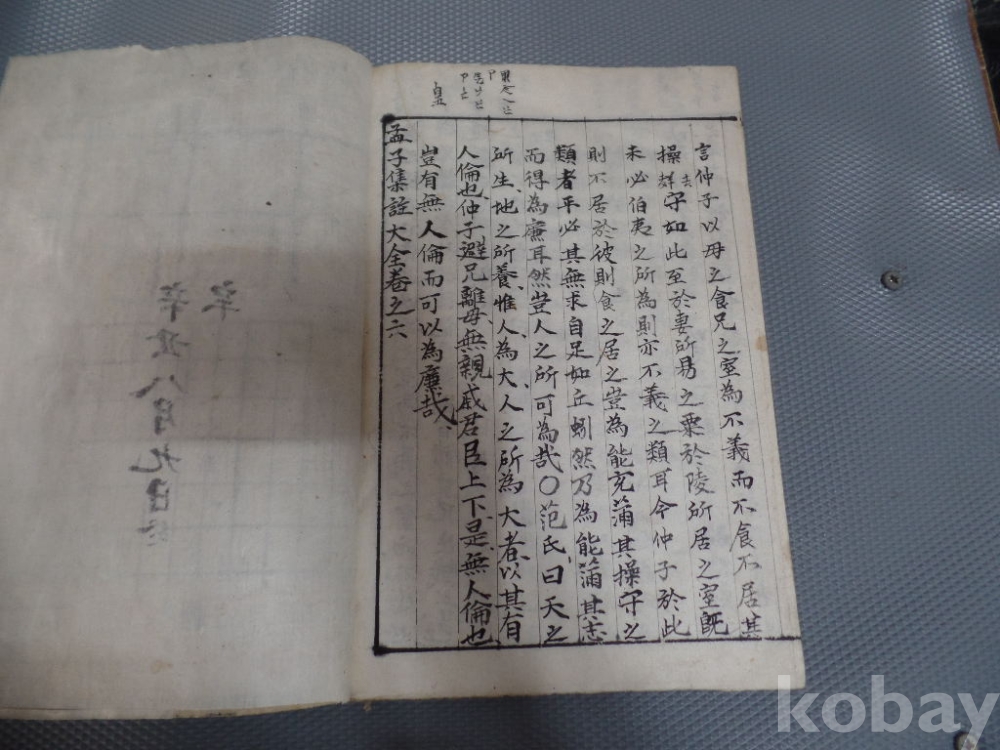 言仲子以母之食兄之室為不義而不食不居其
操去聲守如此至於妻所易之粟於陵所居之室旣
未必伯夷之所為則亦不義之類耳今仲子於此
則不居於彼則食之居之豈為能充滿其操守之
類者乎必其無求自足如丘蚓然乃為能滿其志
而得為廉耳然豈人之所可為哉○范氏曰天之
所生地之所養惟人為大人之所為大者以其有
人倫也仲子避兄離母無親戚君臣上下是無人倫也
豈有無人倫而可以為廉哉
孟子集註大全卷之六
八月九日
kobay